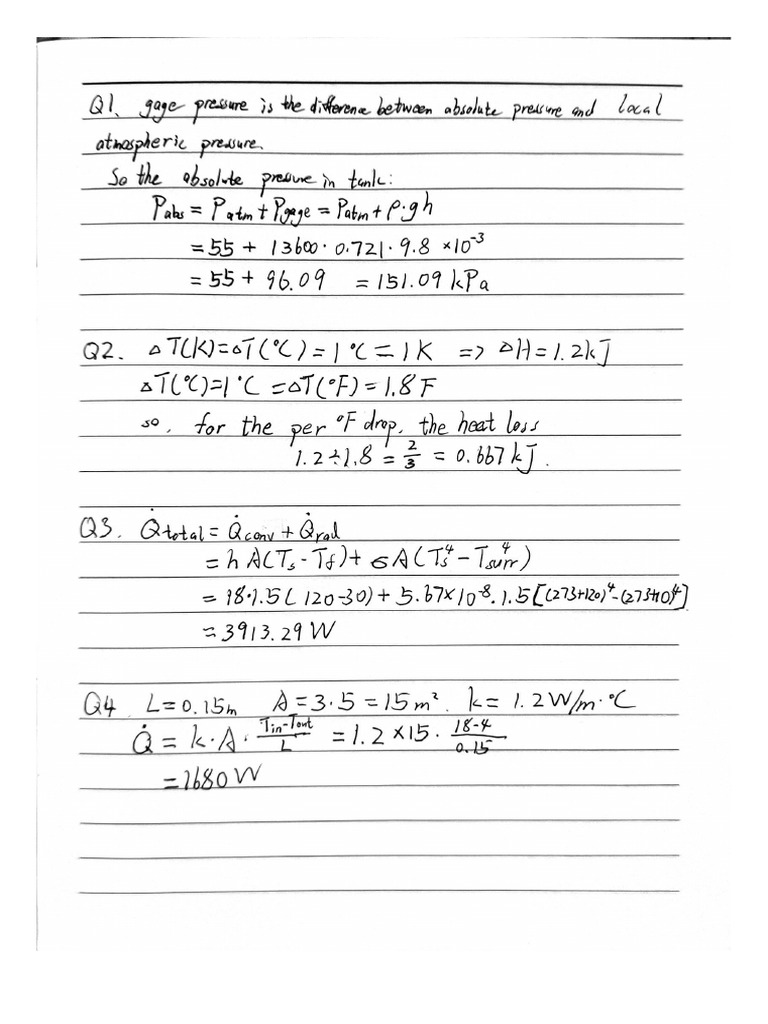 Q1. gage pressure is the difference between absolute pressure and local
atmospheric pressure.
So the absolute pressure in tank:
Pabs = Patm + Pgage = Patm + ρ·gh
= 55 + 13600·0.721·9.8 ×10⁻³
= 55 + 96.09 = 151.09 kPa
Q2. △T(K)=△T(°C)=1°C=1K => △H=1.2kJ
△T(°C)=1°C =△T(°F)=1.8F
so, for the per °F drop, the heat loss
1.2÷1.8 = 2/3 = 0.667kJ.
Q3. Q̇total = Q̇conv + Q̇rad
= hA(Ts-Tf)+ εA(Ts⁴-Tsurr⁴)
= 18·1.5(120-30)+5.67×10⁻⁸·1.5[(273+120)⁴-(273+10)⁴]
= 3913.29W
Q4. L=0.15m A=3·5=15m² k=1.2W/m·°C
Q̇ = k·A·(Tin-Tout)/L = 1.2×15·(18-4)/0.15
=1680W